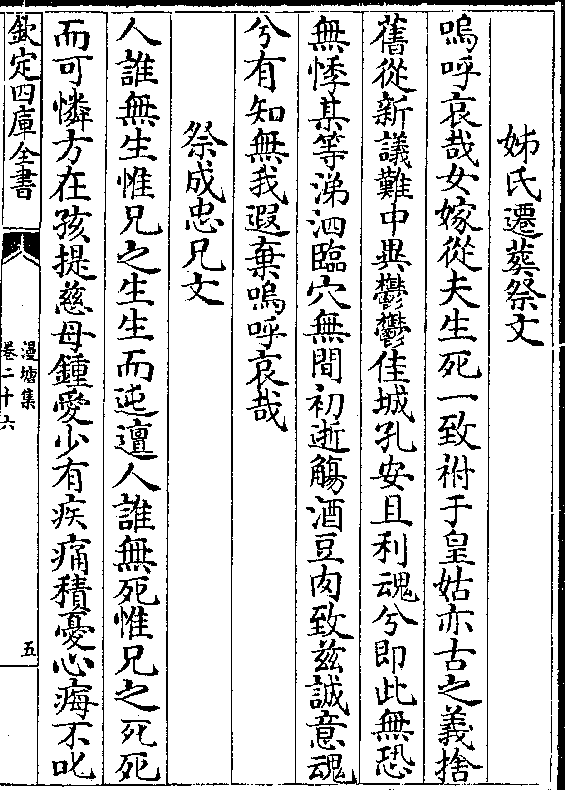 姊氏遷葬祭文
嗚呼哀哉女嫁從夫生死一致祔于皇姑亦古之義捨
舊從新議難中異鬱鬱佳城孔安且利魂兮即此無恐
無悸某等涕泗臨穴無間初逝觴酒豆肉致兹誠意魂
兮有知無我遐棄嗚呼哀哉
祭成忠兄文
人誰無生惟兄之生生而迍邅人誰無死惟兄之死死
而可憐方在孩提慈母鍾愛少有疾痛積憂心痗不叱
欽定四庫全書
漫塘集
卷二十六
五